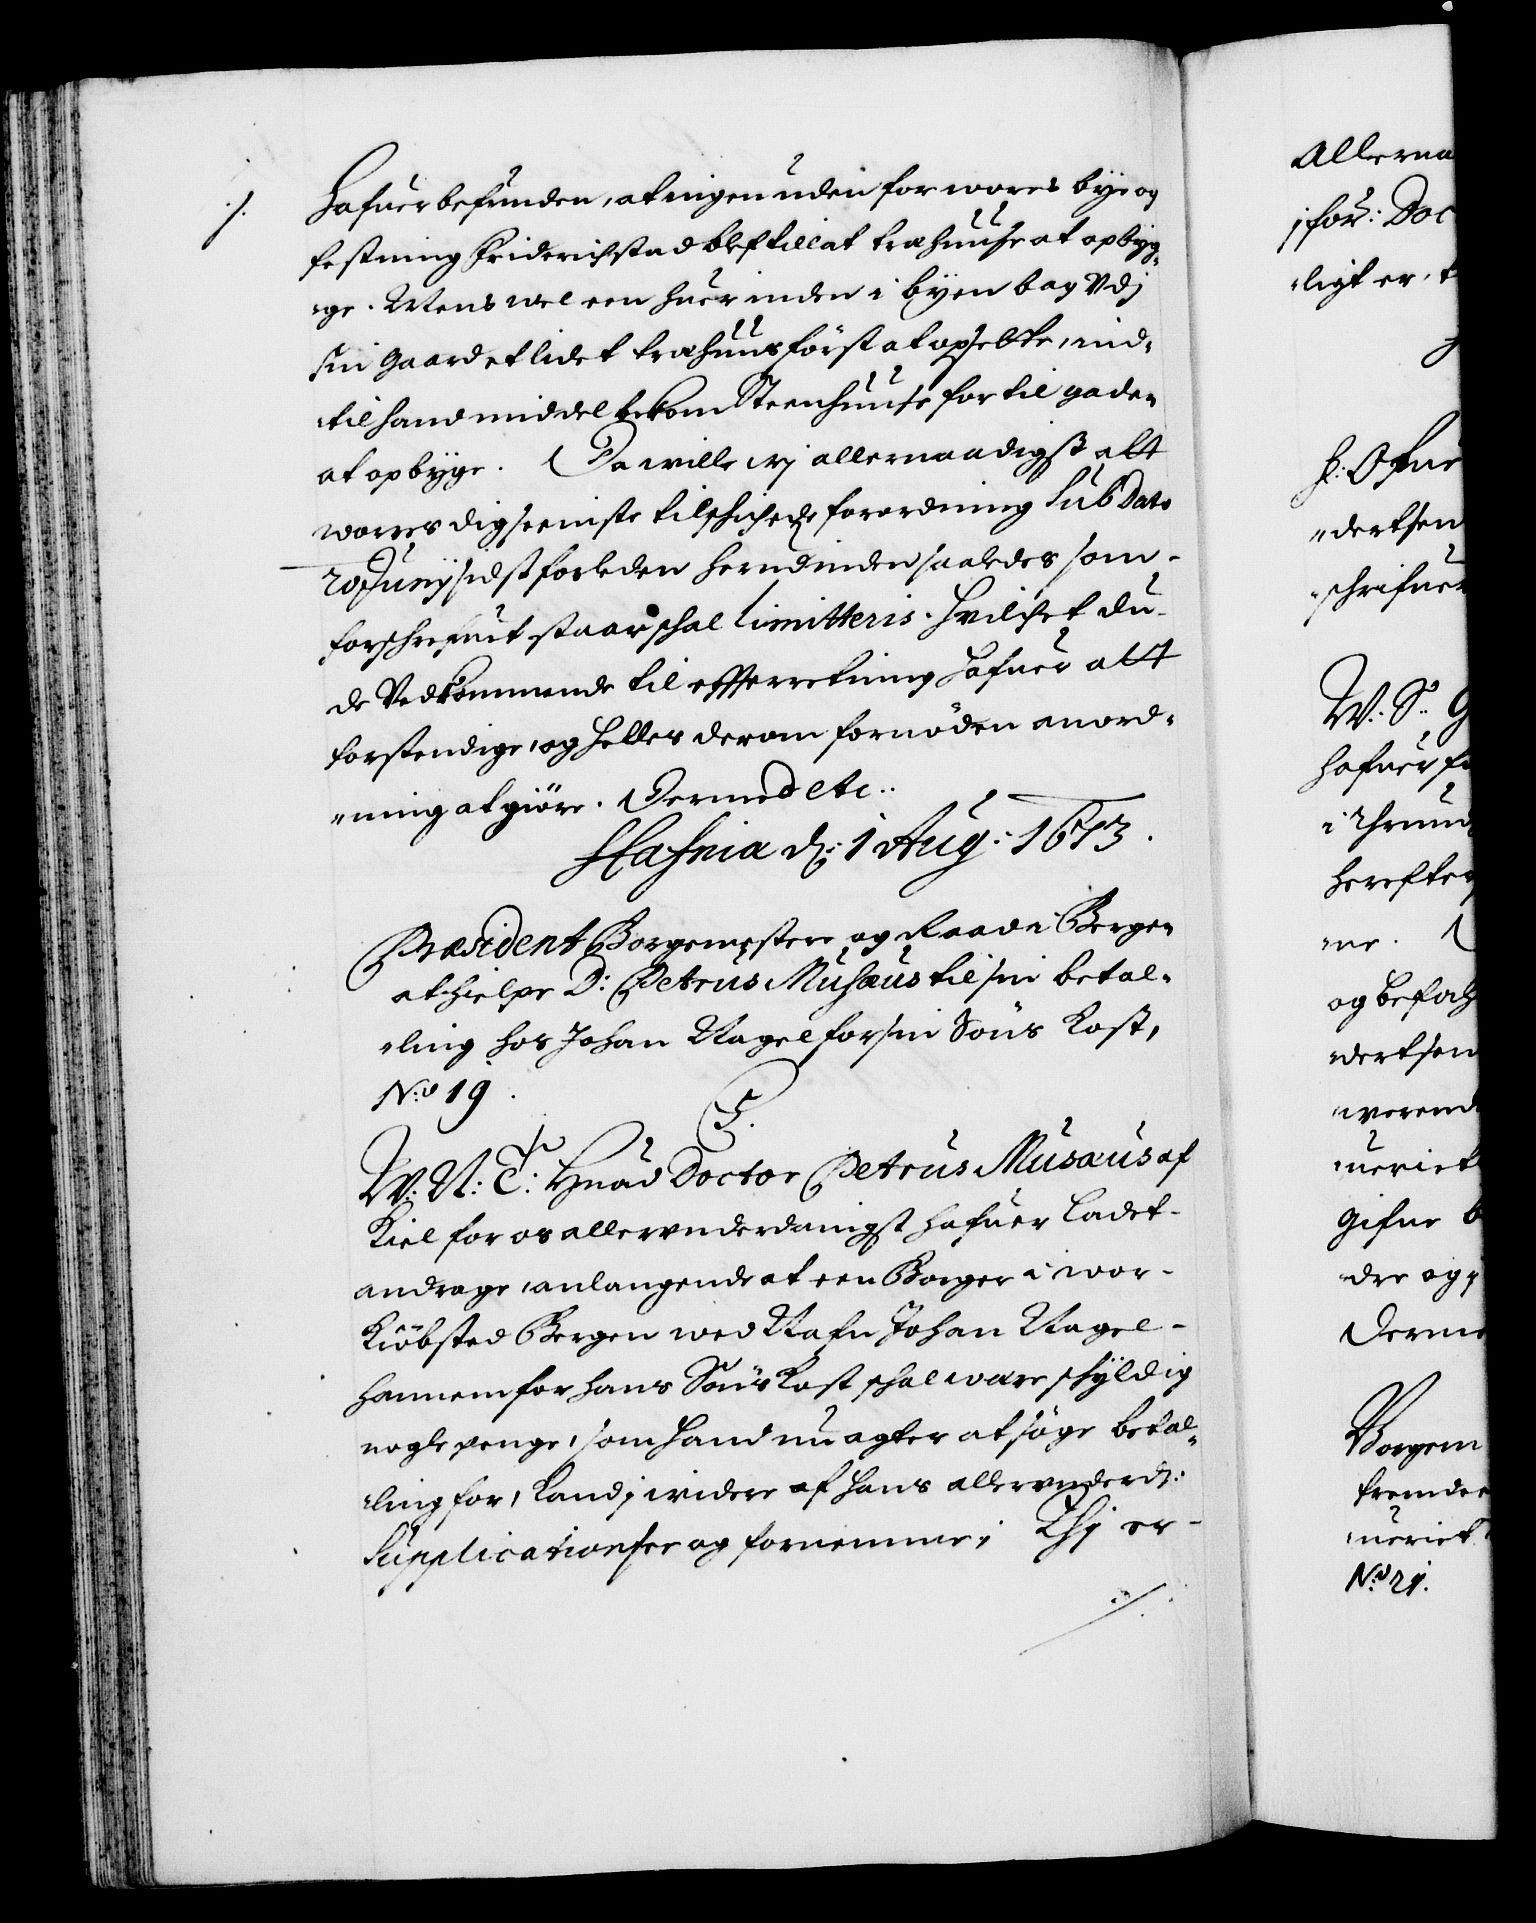 ./.
hafuer befunden, at ingen uden for wores bye og
festning Friderichstad blef tillat træhuuse at opbyg-
-ge. Mens wel een huer inden i byen bag Vdj
sin Gaard et lidet træhuus först at opsette, ind-
-til hand middel bekom Steenhuuse for til gaden
at opbyge. Da wille wj allernaadigst att
wores dig seeniste tilschichede forordning sub Dato
20 Junij sidst forleden herudinden saaledes som-
forschrefuet staar schal limitteris. Hvilchet du-
de Vedkommende til efterretning hafuer att
forstendige, og helles derom fornöden anord-
-ning at giöre. Dermed etc..
Hafnia d: 1 Aug: 1673.
Præsident Borgemestere og Raad i Bergen
at hielpe D: Petrus Musæus til sin betal-
-ling hos Johan Nagel for sin Söns Kost,
No 19.
C5.
W: N: T: Huad Doctor Petrus Musæus af
Kiel for os allervnderdanigst hafuer ladet-
andrage, anlangende at een Borger i wor-
Kiöbsted Bergen wed Nafn Johan Nagel-
hannem for hans Söns Kost schal være schÿldig
nogle penge, som hand nu agter at söge betal-
-ling for, Kand j widere af hans allervnderd:
Supplication see og fornemme; Thj er-
./.
Allerna
j för: Doc
-ligt er, t
H: Ofue
-dertsen
-schrifuer
W: S: G
hafuer fo
i Thrund
herefter
-ne.
og befah
-dertsen
-werend
-ueriet
Gifue b
-dre og
Derme
Borgem
fremdee
-ueriet
No 21.